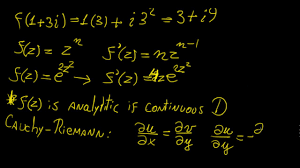 f(1+3i)=1(3)+i3²=3+i9
f(z)=zⁿ f'(z)=nzⁿ⁻¹
f(z)=e^{2z²} → f'(z)=4ze^{2z²}
*f(z) is analytic if continuous D
Cauchy-Riemann: ∂u/∂x=∂v/∂y ∂u/∂y=-∂